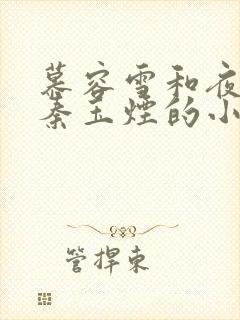 慕容雪和夜
秦玉烟的小
管捍東